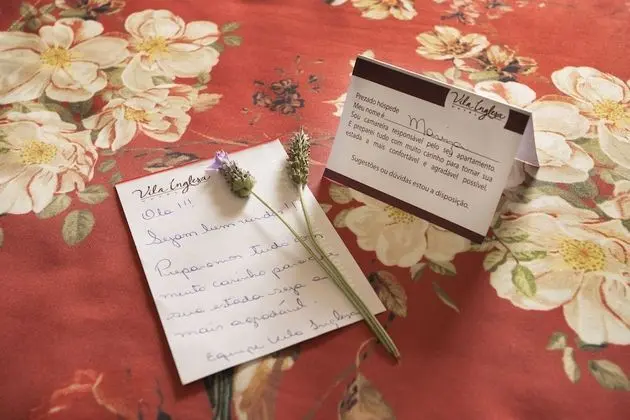 Vila Inglesa
HOTEL
Olá !!!
Sejam bem vindos!!!
Preparamos tudo com
muito carinho para que
sua estada seja a
mais agradável.
Equipe Vila Inglesa
Vila Inglesa
HOTEL
Prezado hóspede
Meu nome é
Sou camareira responsável pelo seu apartamento.
E preparei tudo com muito carinho para tornar sua
estada a mais confortável e agradável possível.
Sugestões ou dúvidas estou a disposição.